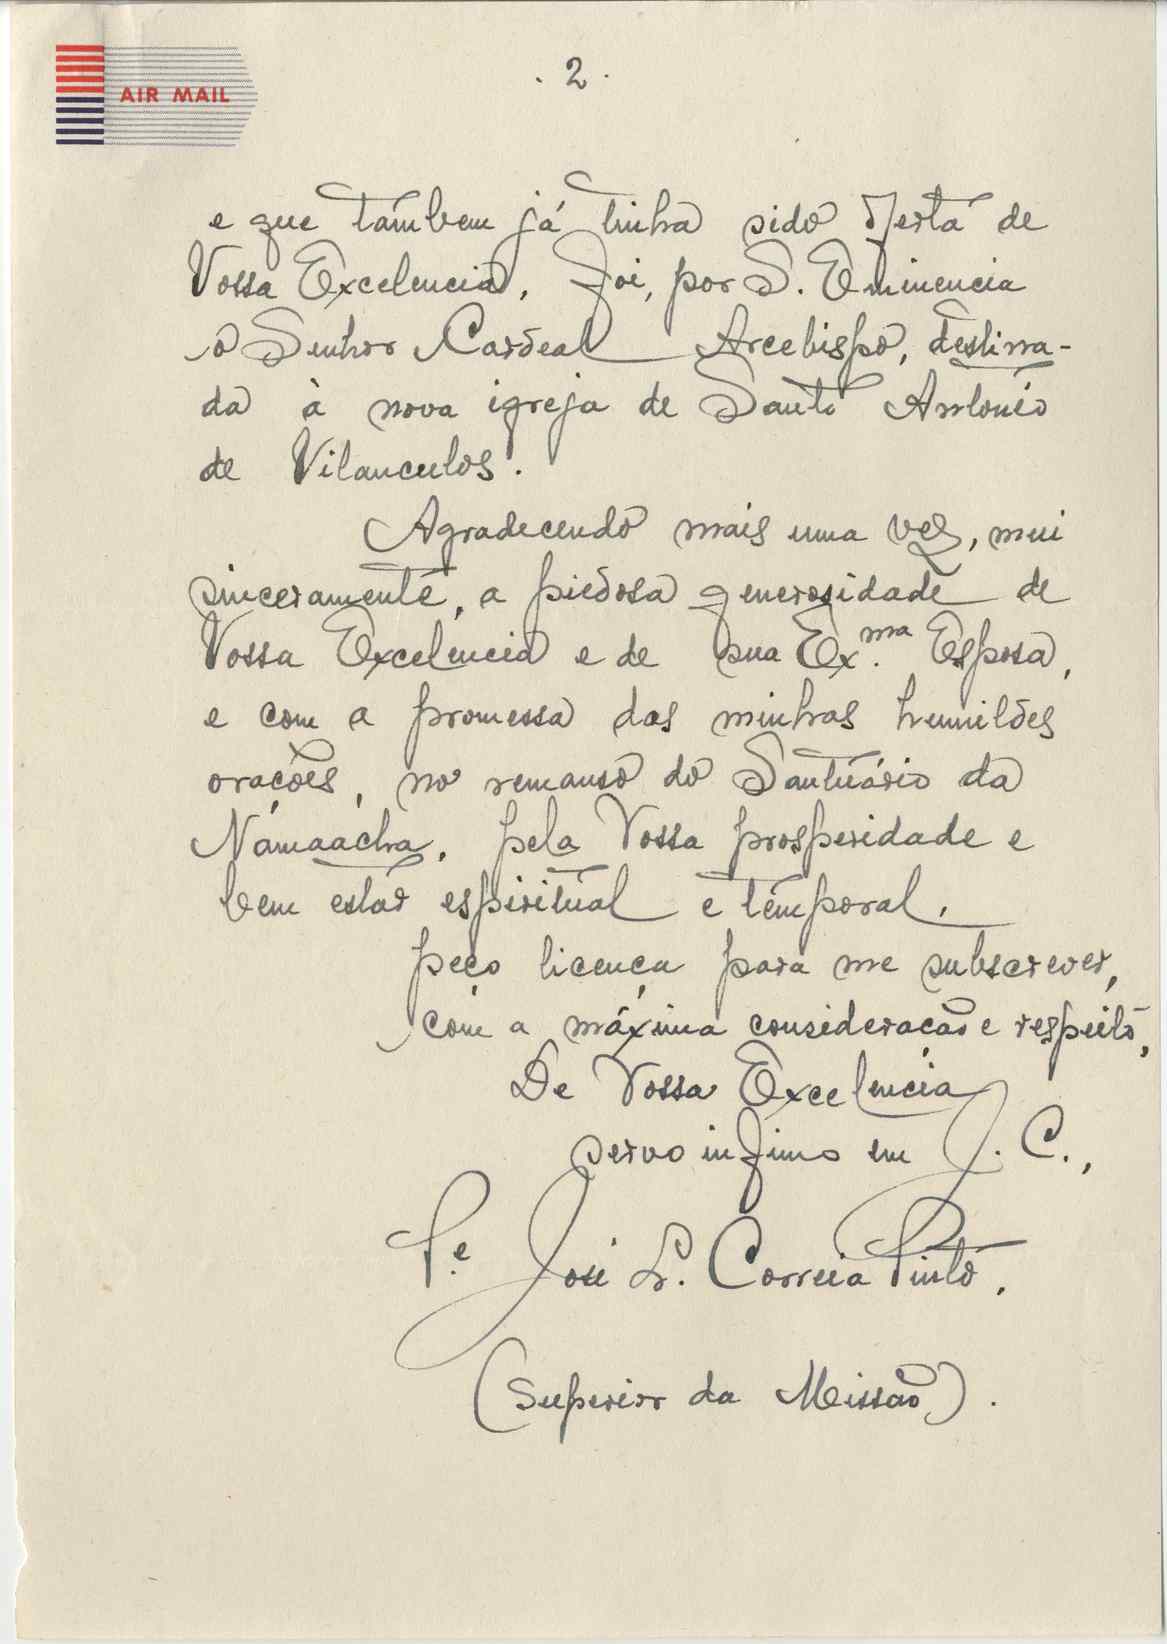 AIR MAIL
. 2 .
e que tambem já tinha sido oferta de
Vossa Excelencia, foi, por S. Eminencia
o Senhor Cardeal Arcebispo, destina-
da à nova igreja de Santo António
de Vilanculos.
Agradecendo mais uma vez, mui
sinceramente, a piedosa generosidade de
Vossa Excelencia e de sua Ex.ma Esposa,
e com a promessa das minhas humildes
orações, no remanso do Santuário da
Namaacha, pela Vossa prosperidade e
bem estar espiritual e temporal,
peço licença para me subscrever,
com a máxima consideração e respeito,
De Vossa Excelencia
servo infimo em J. C.,
P.e José L. Correia Pinto,
(Superior da Missão).